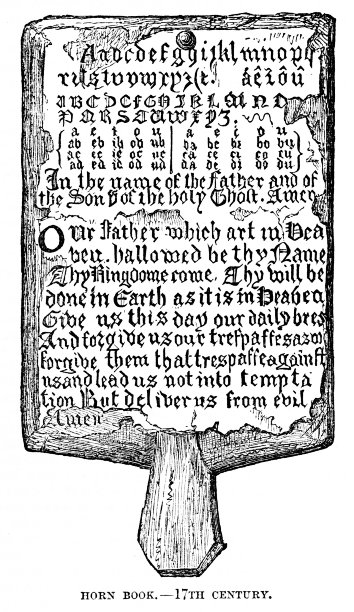 Aabcdefghijklmnoph
rſstuvwxyz&. áéíóú
ABCDEFGHIKLMN
PQRSTUWXYZ.
a e i o u a e i o u
ab eb ib ob ub ba be bi bo bu
ac ec ic oc uc ca ce ci co cu
ad ed id od ud da de di do du
In the name of the Father and of
the Son & of the Holy Ghost. Amen
Our Father which art in Hea
ven. hallowed be thy Name
Thy Kingdome come. Thy will be
done in Earth as it is in Heaven
Give us this day our daily bre
And forgive us our treſpaſſes as w
forgive them that treſpaſſe againſt
us and lead us not into tempta
tion But deliver us from evil
Amen
HORN BOOK.—17TH CENTURY.